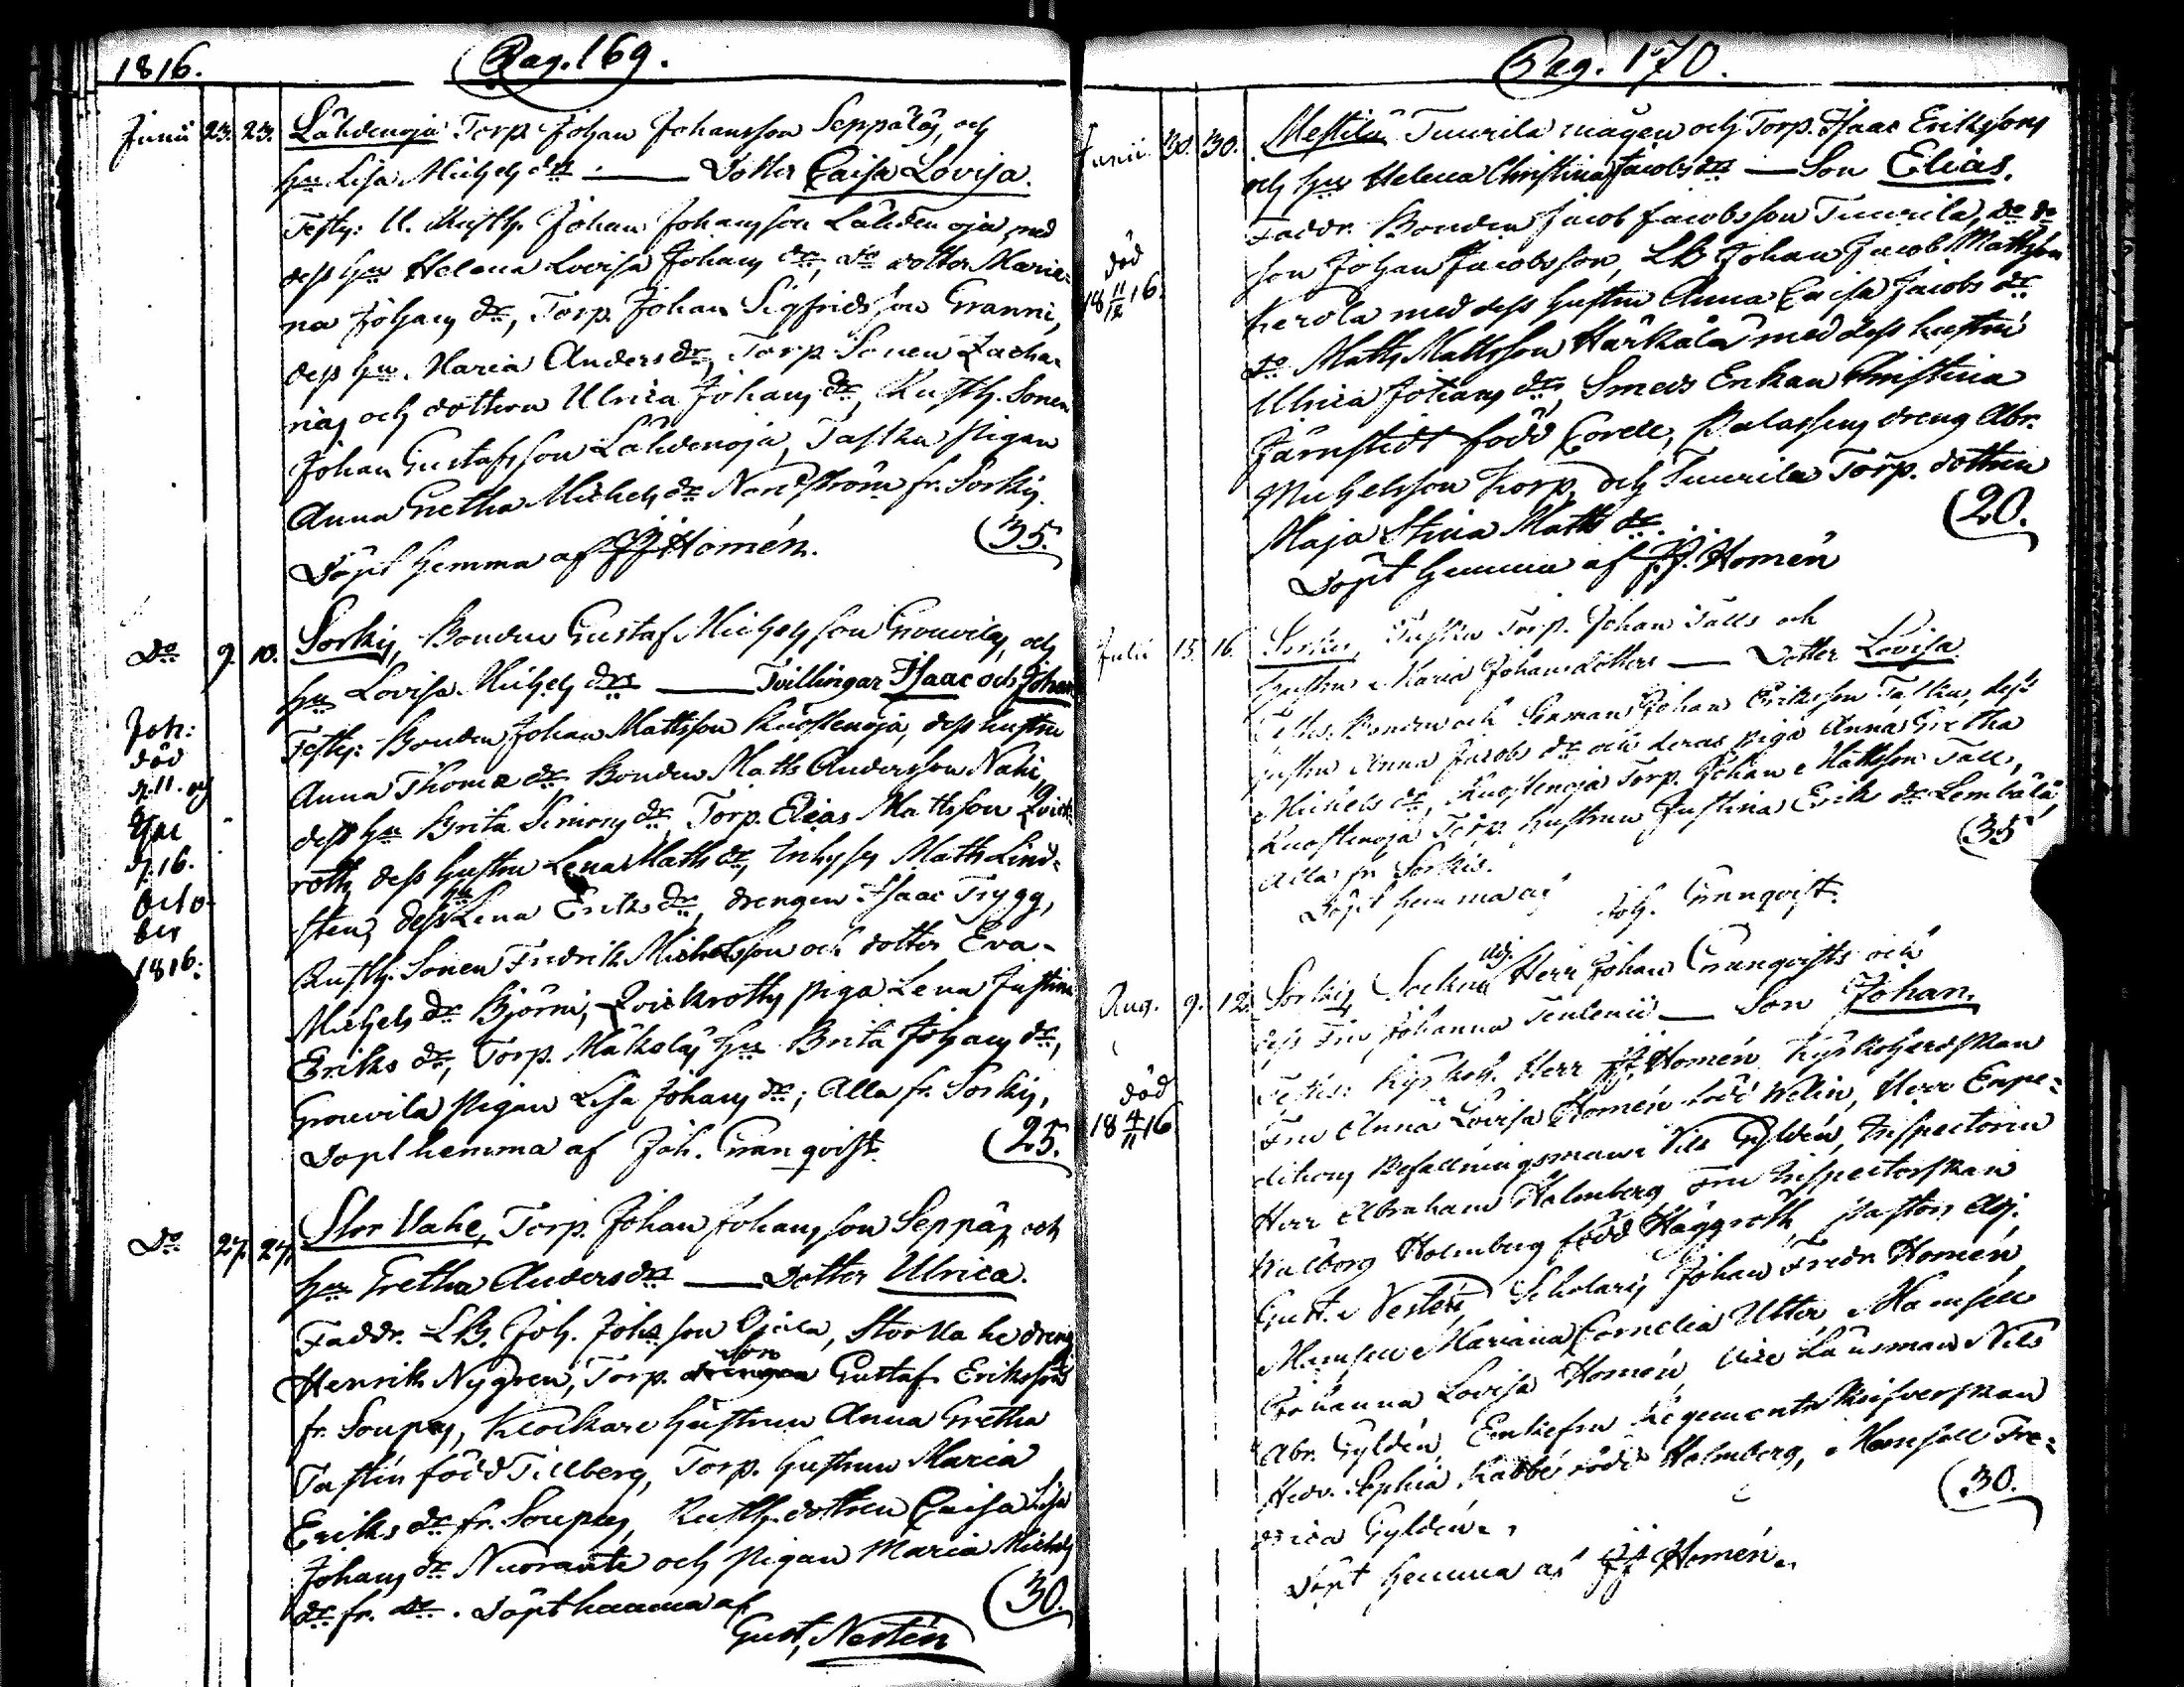 1816.
Pag. 169.
Junii 23. 23. Lähdenoja Torp. Johan Johansson Seppäläs, och
hu. Lisa Michels drs — Dotter Caisa Lovisa.
Test: Johan Johansson Lähdenoja, med
dess hu Helena Lovisa Johans dr, do dotter Maria-
na Johans dr, Torp. Johan Sigfridsson Granni,
dess hu. Maria Anders dr, Torp. Sonen Zacha-
rias och dottren Ulrica Johans dr, Rusth. Sonen
Johan Gustafsson Lähdenoja, Tasku pigan
Anna Gretha Michels dr Nordström fr. Sorkis.
Döpt hemma af JJ Homén. (35.
Do 9. 10. Sorkis, Bonden Gustaf Michelsson Grouvilas, och
hu Lovisa Michels drs — Tvillingar Isaac och Johan
Test: Bonden Johan Mattsson Ruostenoja, dess hustru
Anna Thomæ dr, Bonden Matts Andersson Nahi,
dess hu Brita Simons dr, Torp. Elias Mattsson Qvick-
rott, dess hustru Lena Matts dr, Inhyses Matts Lind-
sten, dess hu Lena Eriks dr, drengen Isaac Trygg,
Rusth. Sonen Fredrik Michelsson och dotter Eva
Michels dr Björni, Qvickrotts piga Lena Justina
Eriks dr, Torp. Mäkeläs hu Brita Johans dr,
Grouvila pigan Lisa Johans dr; Alla fr. Sorkis,
Döpt hemma af Joh. Granqvist. (25.
Joh:
död
d. 11. och
Isac
d. 16.
Octo-
ber
1816.
Do 27. 27. Stor Vahe, Torp. Johan Johansson Seppäs och
hu Gretha Anders drs — Dotter Ulrica.
Faddr. LB. Joh. Johsson Ojala, Stor Vahe dreng
Henrik Nygren, Torp. son Gustaf Eriksson
fr. Soupas, Klockare hustrun Anna Gretha
Tastin född Tillberg, Torp. hustrun Maria
Eriks dr fr. Soupas, Rusth. dottren Caisa Lisa
Johans dr Nuorante och pigan Maria Michels
dr fr. do. Döpt hemma af (30.
Gust. Nestén
Pag. 170.
Junii 30. 30. Mestilä Tuurila mågen och Torp. Isaac Erikssons
och hus Helena Christina Jacobs drs — Son Elias.
Faddr. Bonden Jacob Jacobsson Tuurila, do do
son Johan Jacobsson, LB Johan Jacob Mattsson
Kerola med dess hustru Anna Caisa Jacobs dr
do Matts Mattsson Härkälä med dess hustru
Ulrica Johans dr, Smeds Enkan Christina
Järnstedt född Corell, dreng Abr.
Michelsson Korp, och Tuurila Torp. dottren
Maja Stina Matts dr. (20.
Döpt hemma af J.J. Homén
död
18 11/12 16.
Julii 15. 16. Sorkis, Tasku Torp. Johan Talls och
hustru Maria Johansdotters — Dotter Lovisa
Testes: Bonden och Sexman Johan Eriksson Tasku, dess
hustru Anna Jacobs dr och deras piga Anna Gretha
Michels dr, Ruostenoja Torp. Johan Mattsson Tall,
Ruostenoja Torp. hustrun Justina Eriks dr Lembälä,
Alla fr Sorkis. (35
Döpt hemma af Joh. Granqvist.
Aug. 9. 12. Sorkis, Sockne adj. Herr Johan Granqvists och
dess Fru Johanna Tenlenii — Son Johan.
Testes: Kyrkoh. Herr JJ. Homén, Kyrkoherdskan
Fru Anna Lovisa Homén född Welin, Herr Expe-
ditions Befallningsman Nils Gyldén, Inspectoren
Herr Abraham Holmberg, Fru Inspectorskan
Walborg Holmberg född Häggroth, Pastors Adj.
Gust. Nestén, Scholaris Johan Fredr Homén,
Mamsell Mariana Cornelia Utter, Mamsell
Johanna Lovisa Homén, Vice Länsman Nils
Abr. Gyldén, Enkefru Regements Skrifverskan
Hedv. Sophia Rabbe född Holmberg, Mamsell Fre-
drica Gyldén. (30.
Döpt hemma af JJ Homén.
död
18 4/11 16